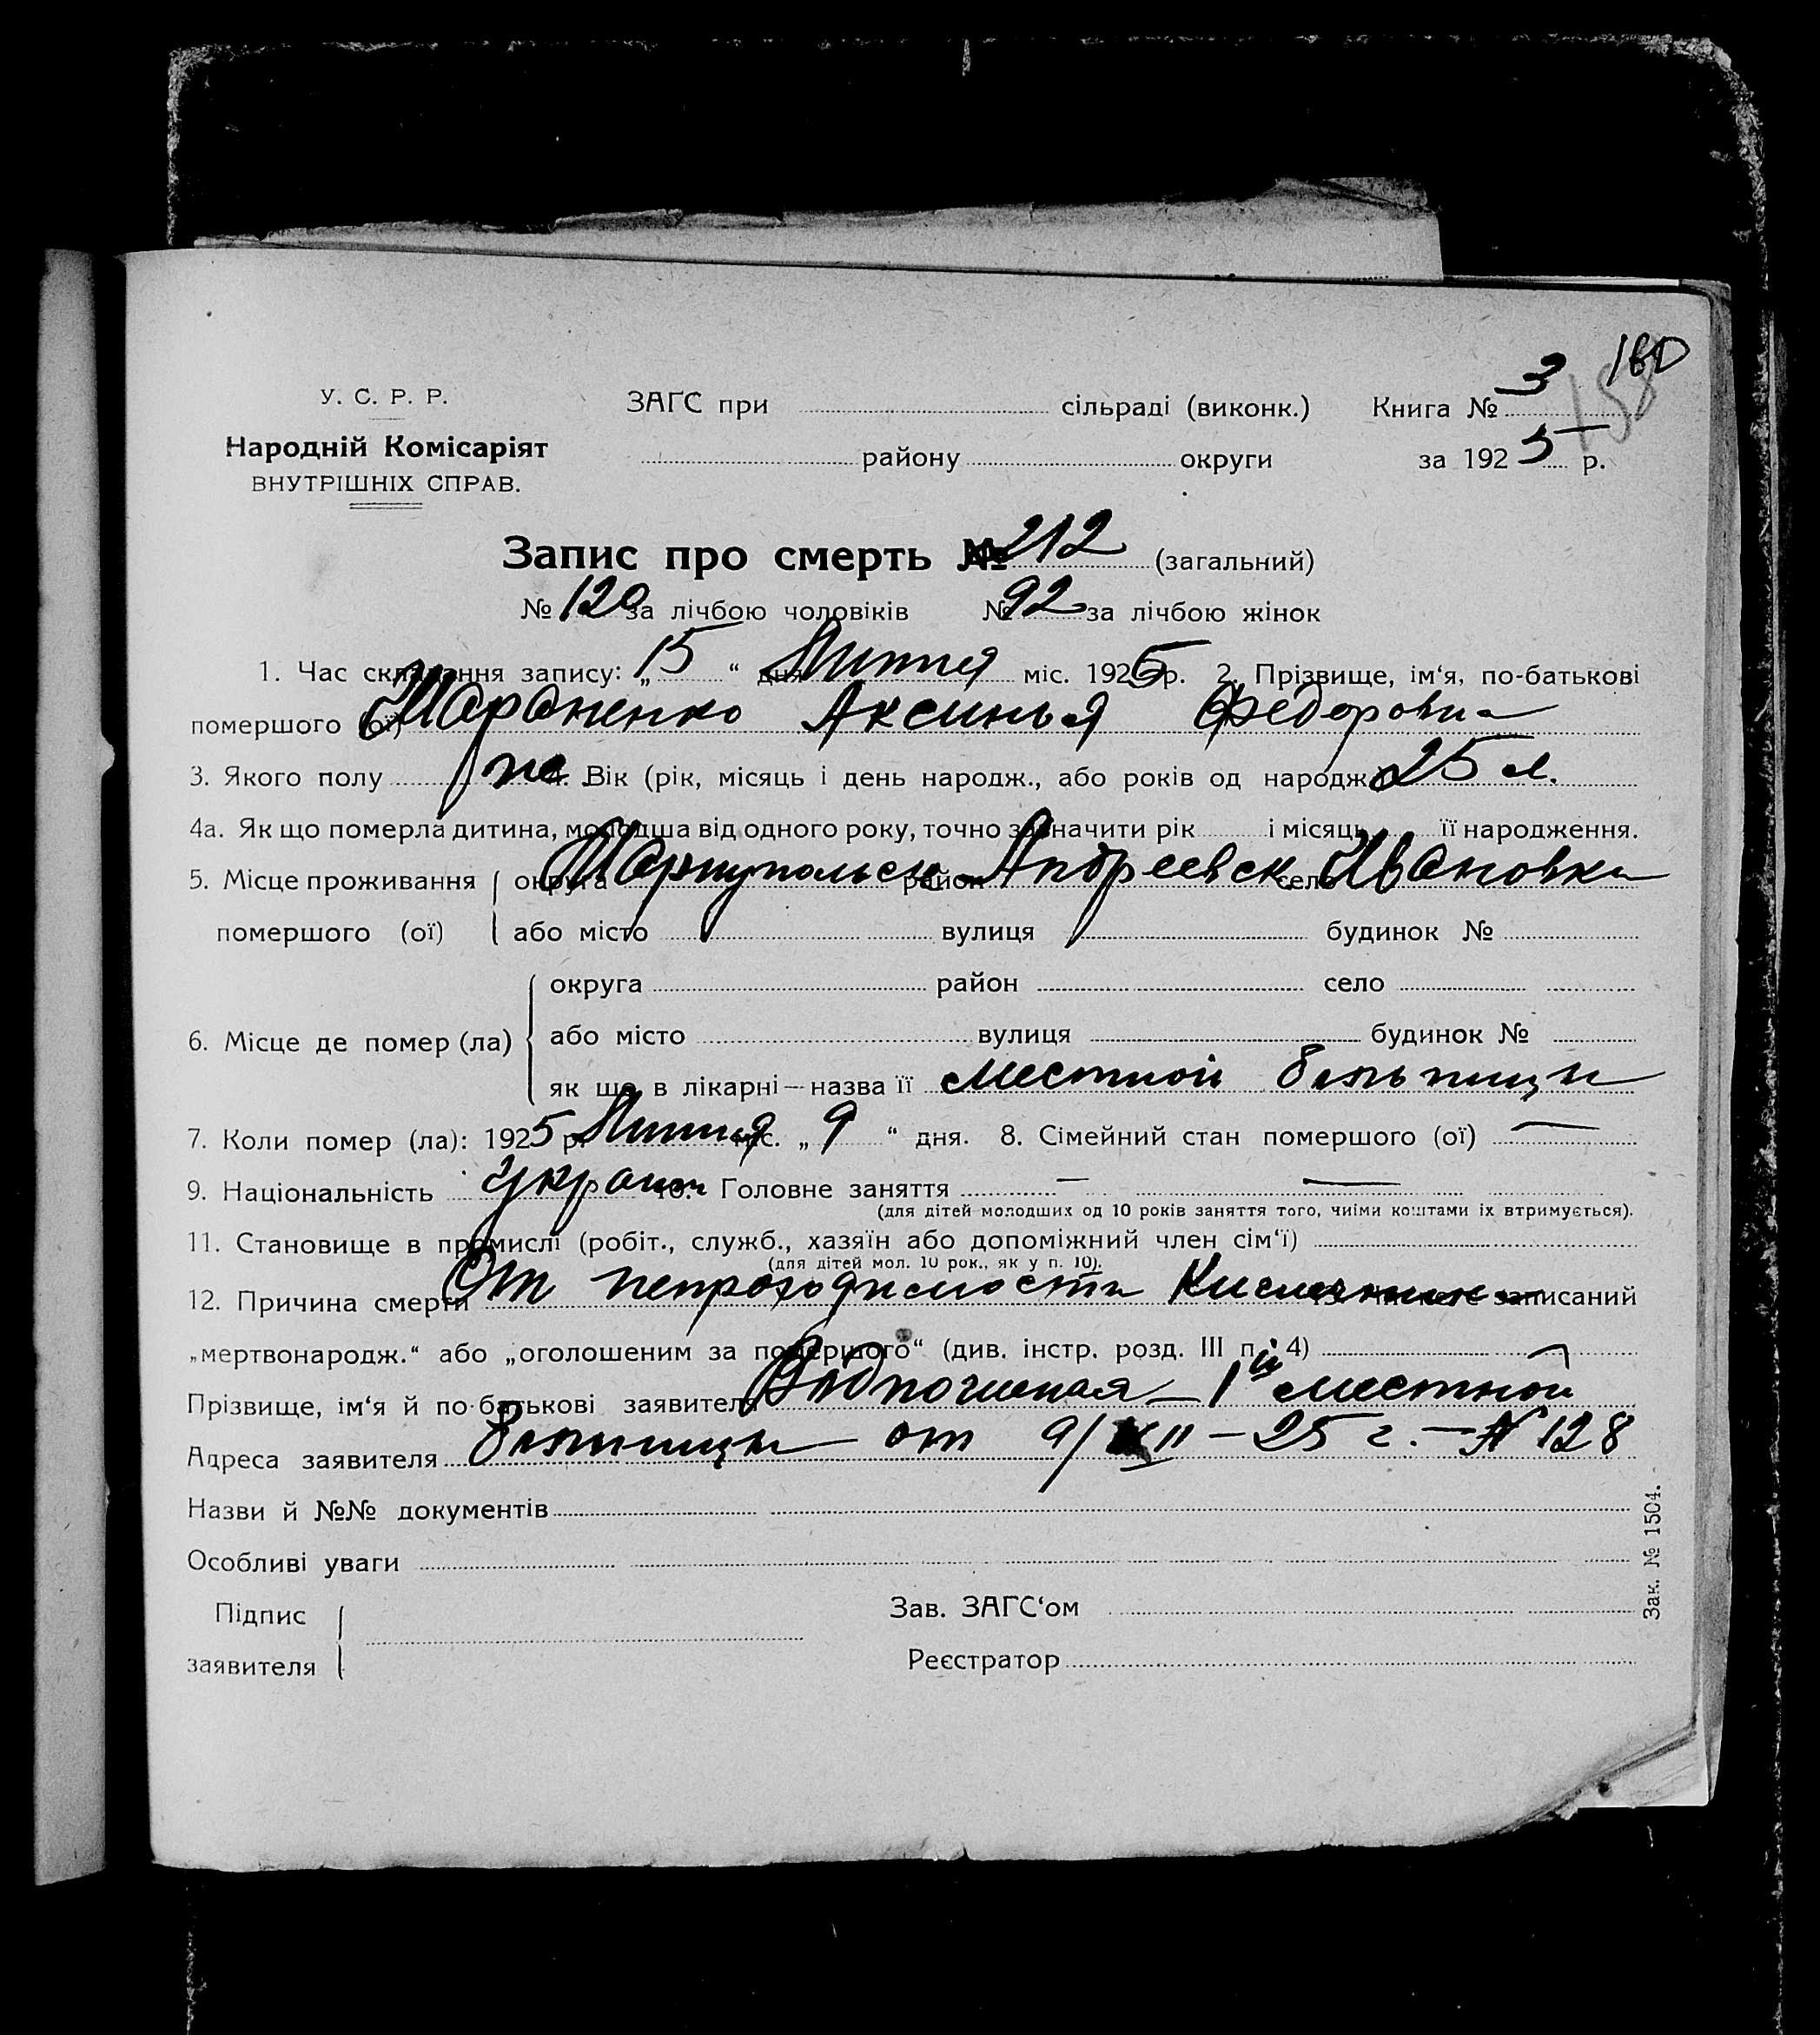 160
158
У. С. Р. Р. ЗАҐС при сільраді (виконк.) Книга № 3
Народній Комісаріят району округи за 1925 р.
ВНУТРІШНІХ СПРАВ.
Запис про смерть № 212 (загальний)
№ 120 за лічбою чоловіків № 92 за лічбою жінок
1. Час складання запису: „15“ дня Липня міс. 1925 р. 2. Прізвище, ім‘я, по-батькові
помершого (ої) Шараненко Аксинья Федоровна
3. Якого полу же 4. Вік (рік, місяць і день народж., або років од народж.) 25 л.
4а. Як що померла дитина, молодша від одного року, точно зазначити рік і місяць її народження.
5. Місце проживання округа Мариупольск район Андреевск село Ивановка
помершого (ої) або місто вулиця будинок №
округа район село
6. Місце де помер (ла) або місто вулиця будинок №
як що в лікарні — назва її местной больницы
7. Коли помер (ла): 1925 р. Липня міс. „9“ дня. 8. Сімейний стан помершого (ої) —
9. Національність украин 10. Головне заняття — —
(для дітей молодших од 10 років заняття того, чиїми коштами їх втримується).
11. Становище в промислі (робіт., служб., хазяїн або допоміжний член сім‘ї)
(для дітей мол. 10 рок., як у п. 10).
12. Причина смерти От непроходимости Кишечника записаний
„мертвонародж.“ або „оголошеним за помершого“ (див. інстр. розд. III п. 4)
Прізвище, ім‘я й по-батькові заявителя 1й местной
Адреса заявителя больницы от 9/VII – 25 г. – № 128
Назви й №№ документів
Особливі уваги
Підпис Зав. ЗАҐС‘ом
заявителя Реєстратор
Зак. № 1504.